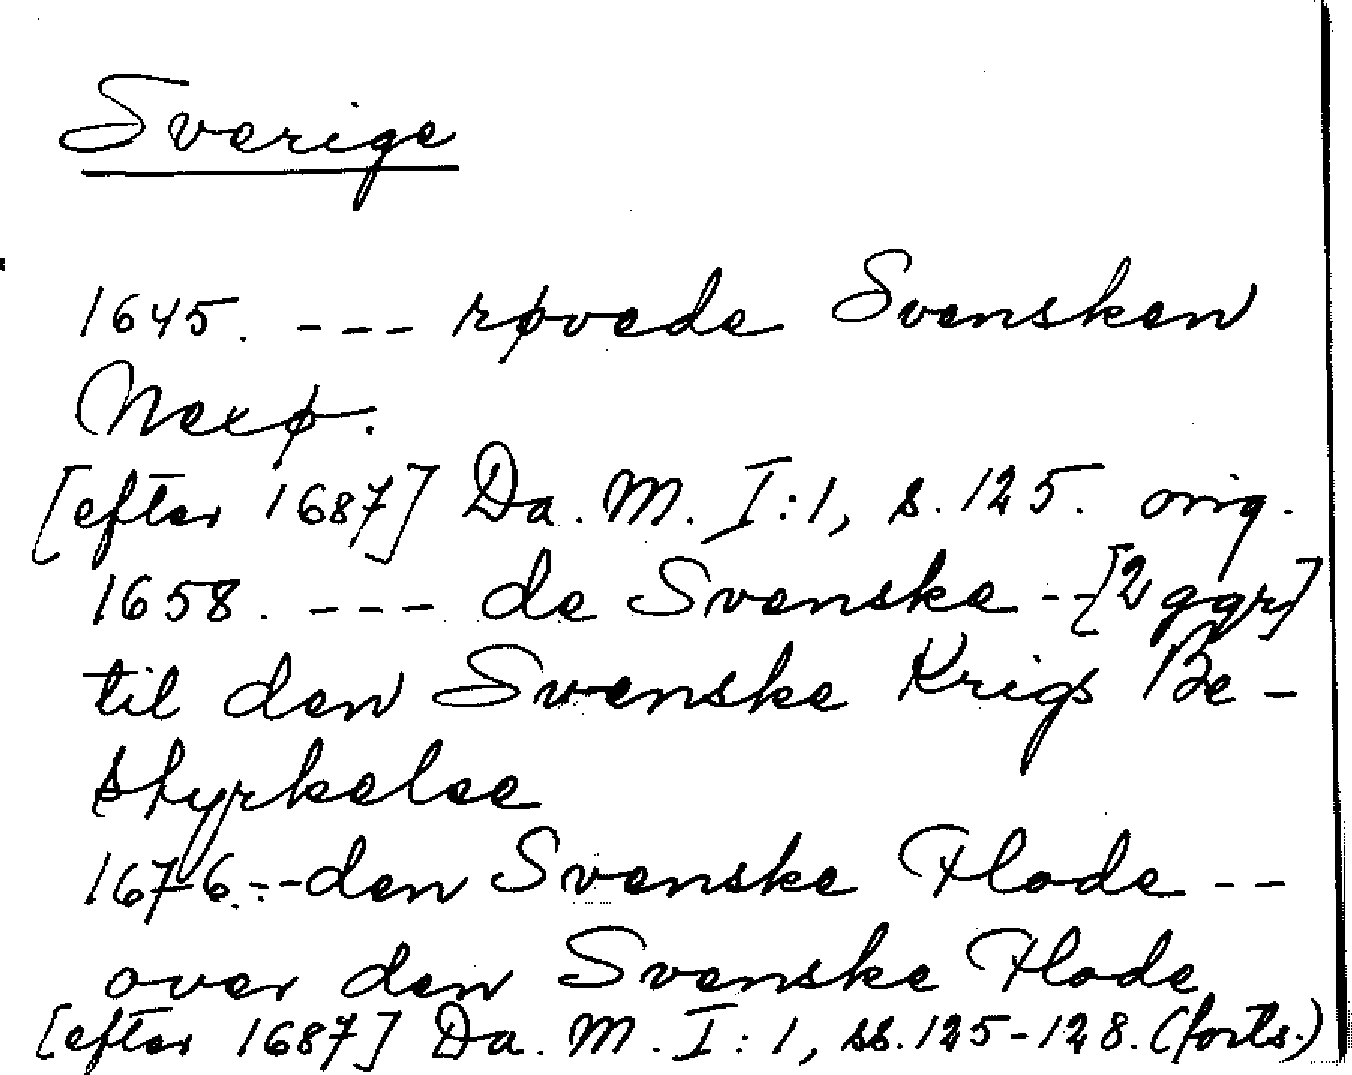 Sverige
1645. --- røvede Svensken
Nexø.
[efter 1687] Da. M. I:1, s. 125. orig.
1658. --- de Svenske --[2 ggr]
til den Svenske Krigs Be-
styrkelse
1676.--den Svenske Flode --
over den Svenske Flode
[efter 1687] Da. M. I:1, ss. 125-128. (forts.)